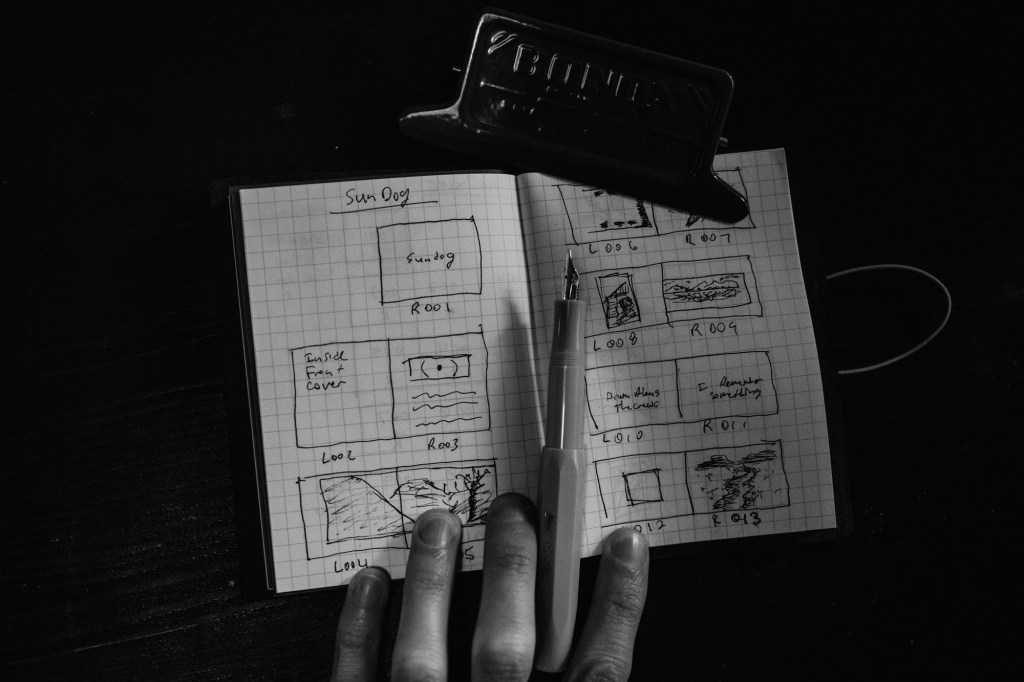 Sun Dog
Sundog
R001
Inside
Front
Cover
L002
R003
L004
5
L006
R007
L008
R009
Down Along
the creek
I Remember
something
L010
R011
012
R013